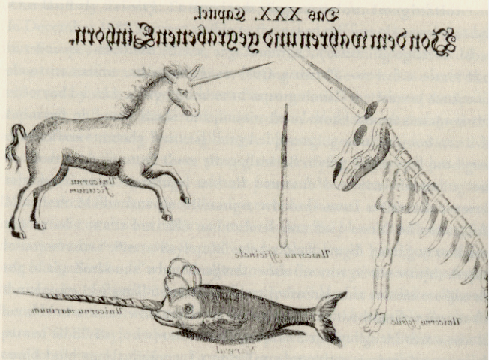 Das XXX. Capitel.
Von dem wahren und gegrabenen Einhorn.
Unicornu
fictitium
Unicornu officinale
Unicornu marinum
Unicornu fossile
Narwal